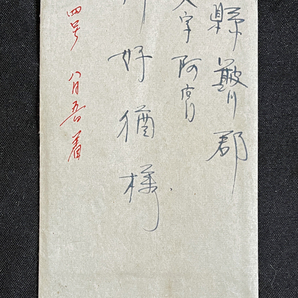 縣簸川郡
大字阿宮
好猶様
四号 八月五日着